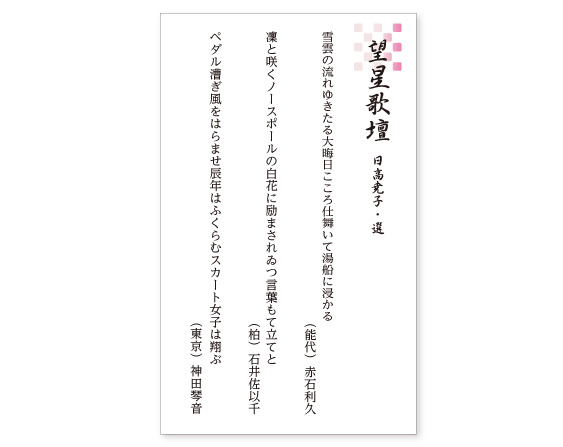 望星歌壇 日高堯子・選
雪雲の流れゆきたる大晦日こころ仕舞いて湯船に浸かる
（能代）赤石利久
凜と咲くノースポールの白花に励まされゐつ言葉もて立てと
（柏）石井佐以千
ペダル漕ぎ風をはらませ辰年はふくらむスカート女子は翔ぶ
（東京）神田琴音